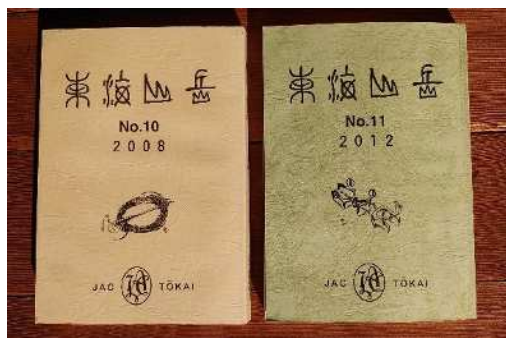 東海山岳
No.10
2008
JAC TŌKAI
東海山岳
No.11
2012
JAC TŌKAI